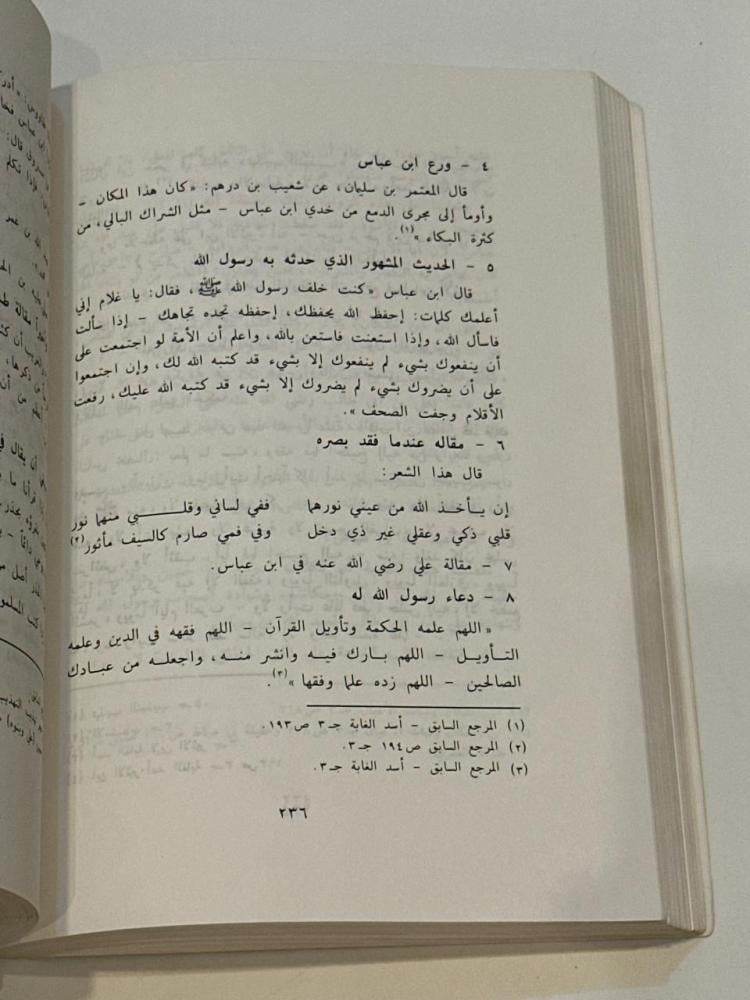 ٤ – ورع ابن عباس
قال المعتمر بن سليان، عن شعيب بن درهم: «كان هذا المكان –
وأومأ إلى مجرى الدمع من خدي ابن عباس – مثل الشراك البالي، من
كثرة البكاء»(١).
٥ – الحديث المشهور الذي حدثه به رسول الله
قال ابن عباس «كنت خلف رسول الله ﷺ، فقال: يا غلام إني
أعلمك كلمات: إحفظ الله يحفظك، إحفظه تجده تجاهك – إذا سألت
فاسأل الله، وإذا استعنت فاستعن بالله، واعلم أن الأمة لو اجتمعت على
أن ينفعوك بشيء لم ينفعوك إلا بشيء قد كتبه الله لك، وإن اجتمعوا
على أن يضروك بشيء لم يضروك إلا بشيء قد كتبه الله عليك، رفعت
الأقلام وجفت الصحف».
٦ – مقاله عندما فقد بصره
قال هذا الشعر:
إن يأخذ الله من عيني نورهما ففي لساني وقلبي منهما نور
قلبي ذكي وعقلي غير ذي دخل وفي فمي صارم كالسيف مأثور(٢)
٧ – مقالة علي رضي الله عنه في ابن عباس.
٨ – دعاء رسول الله له
«اللهم علمه الحكمة وتأويل القرآن – اللهم فقهه في الدين وعلمه
التأويل – اللهم بارك فيه وانشر منه، واجعله من عبادك
الصالحين – اللهم زده علما وفقها»(٣).
(١) المرجع السابق – أسد الغابة جـ٣ ص١٩٣.
(٢) المرجع السابق ص١٩٤ جـ٣.
(٣) المرجع السابق – أسد الغابة جـ٣.
٢٣٦